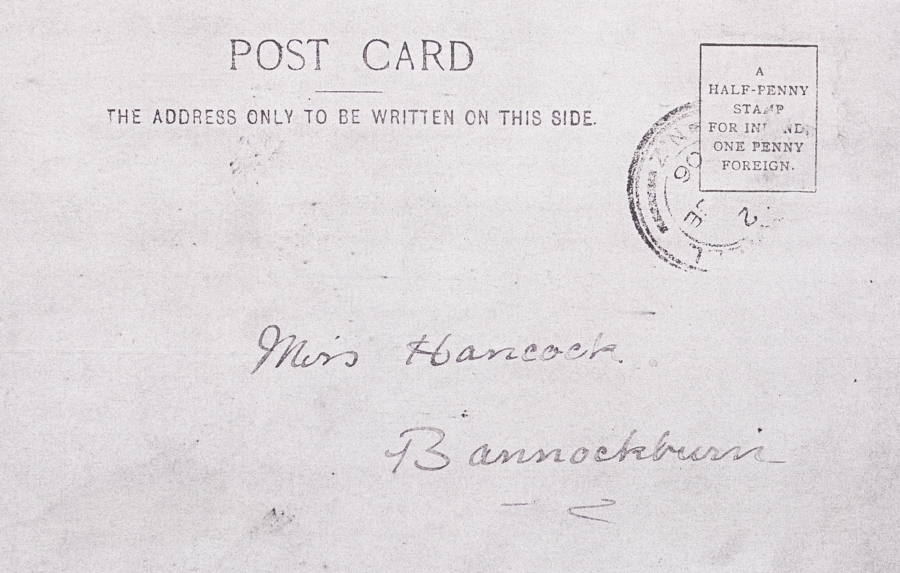 POST CARD
THE ADDRESS ONLY TO BE WRITTEN ON THIS SIDE.
A
HALF-PENNY
STAMP
FOR INLAND,
ONE PENNY
FOREIGN.
JE
2
06
Miss Hancock
Bannockburn